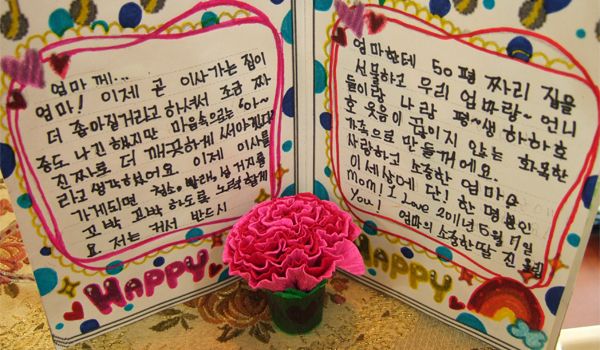 엄마 께...
엄마! 이제 곧 이사 가는 집이
더 좁아질거라고 하셔서 조금 짜
증도 나긴 했지만 마음속으로는 '아~
진짜로 더 깨끗하게 써야겠다'
라고 생각했어요. 이제 이사를
가게되면 청소, 빨래, 설거지를
꼬박 꼬박 하도록 노력할게
요. 저는 커서 반드시
HAPPY
엄마한테 50평 짜리 집을
선물하고 우리 엄마랑~ 언니
들이랑 나랑 평~생 하하호
호 웃음이 끊이지 않는 화목한
가족으로 만들께에요.
사랑하고 소중한 엄마♡
이 세상에 단! 한 명뿐인
Mom! I Love 2011년 5월 7일
You! 엄마의 소중한 딸 진
HAPPY